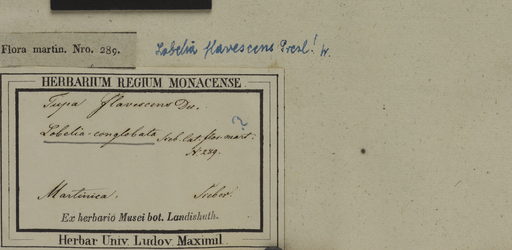 Flora martin. Nro. 289.
Lobelia flavescens Presl!
HERBARIUM REGIUM MONACENSE.
Tupa flavescens
?
Lobelia conglobata
N. 289.
Martinica. Sieber.
Ex herbario Musei bot. Landishuth.
Herbar Univ. Ludov Maximil.